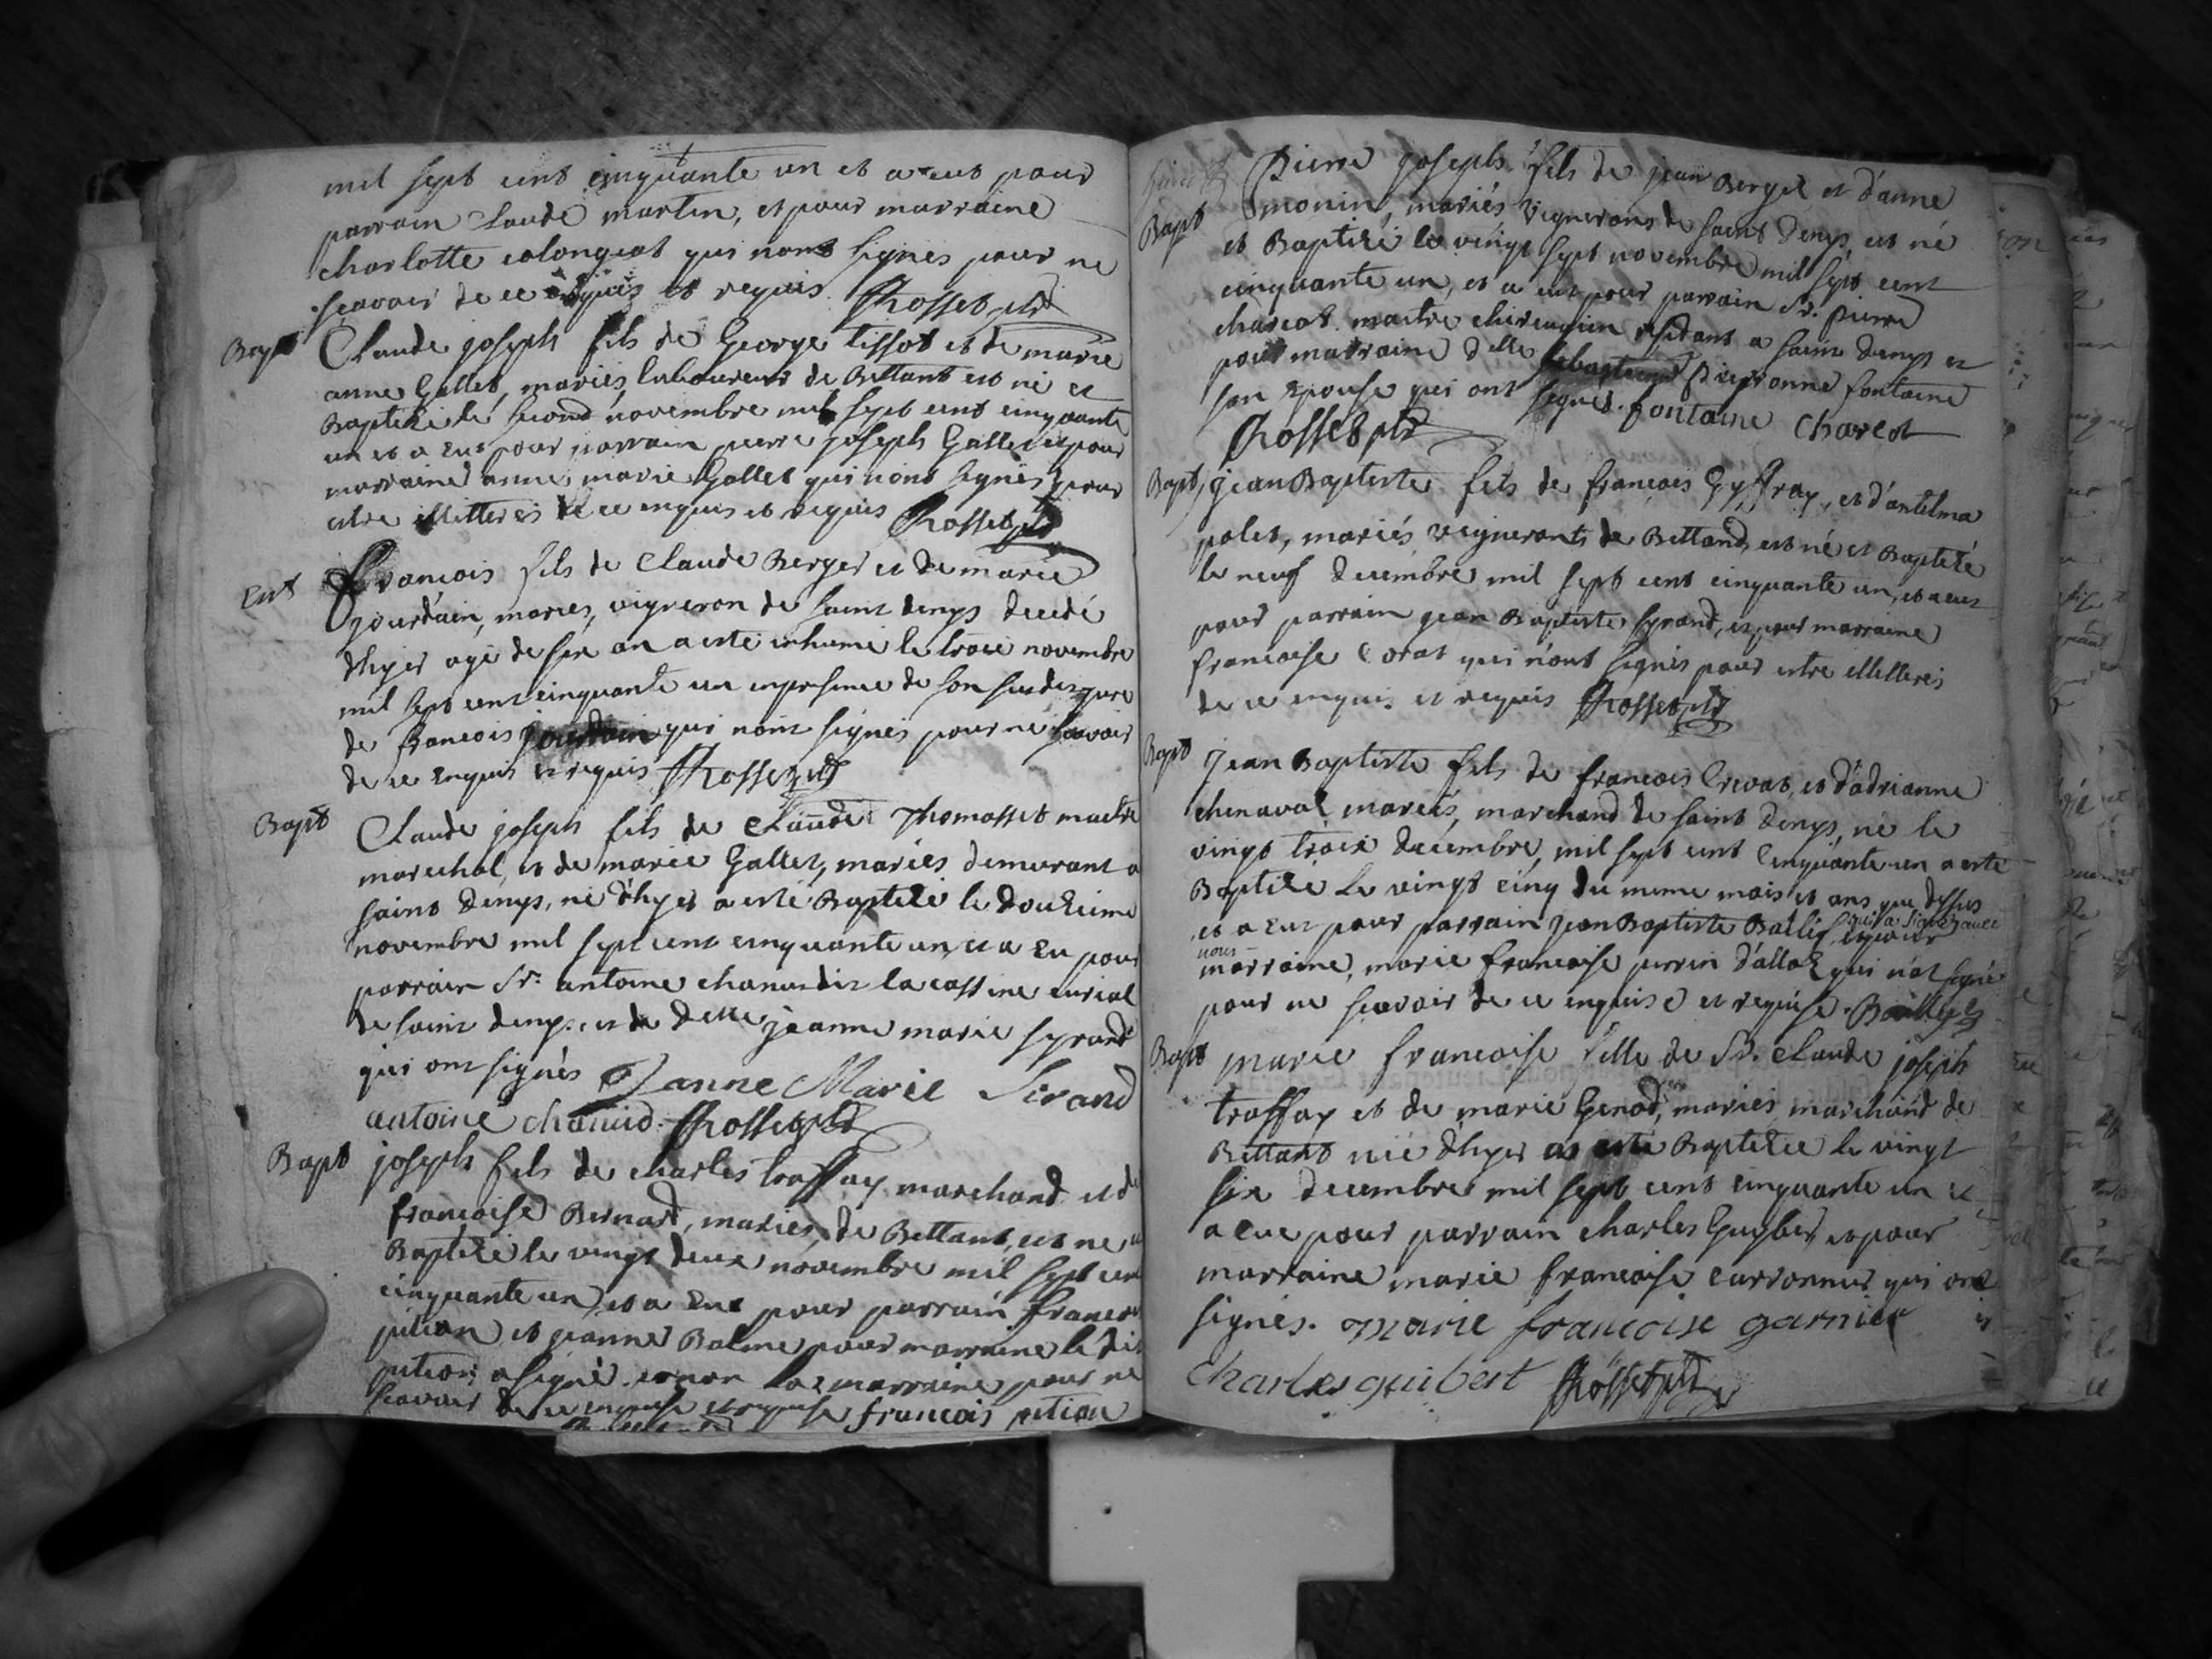 mil sept cent cinquante un et a eut pour
parrain Claude martin, et pour marraine
charlotte colongeat qui nont signés pour ne
scavoir de ce enquis et requis Rosset ptre
Bapt Claude joseph fils de George tissot et de marie
anne Gallet, mariés laboureur de Bettant est né et
Baptizé le second novembre mil sept cent cinquante
un et a eut pour parrain pierre joseph Gallet et pour
marraine anne marie Gallet qui nont signés pour
estre illitteres de ce enquis et requis Rosset ptre
Ent francois fils de Claude Berger et de marie
jourdain, mariés, vigneron de saint denys decedé
d'hyer agé de six an a esté inhumé le trois novembre
mil sept cent cinquante un en presence de son susdit pere
de francois jourdain qui nont signés pour ne scavoir
de ce enquis et requis Rosset ptre
Bapt Claude joseph fils de Claude Thomasset maitre
marechal, et de marie Gallet, mariés demeurant a
saint denys, né d'hyer a esté Baptizé le douzieme
novembre mil sept cent cinquante un et a eu pour
parrain Sr. antoine chanud dit la cassine curial
de saint denys, et de delle jeanne marie syrand
qui ont signés Janne Marie Sirand
antoine chanud. Rosset ptre
Bapt joseph fils de charles traffay marchand et de
francoise Bernard, mariés, de Bettant, est né et
Baptizé le vingt deux novembre mil sept cent
cinquante un et a eut pour parrain francois
pition et jeanne Balme pour marraine le dit
pition a signé et non la marraine pour ne
scavoir de ce enquise et requise francois pition
Bapt Pierre joseph fils de jean Berger et d'anne
monin, mariés vignerons de saint denys, est né
et Baptizé le vingt sept novembre mil sept cent
cinquante un, et a eut pour parrain Sr. pierre
charcot maitre chirurgien residant a saint denys et
pour marraine delle Pierronne fontaine
son epouse qui ont signés. fontaine Charcot
Rosset ptre
Bapt jean Baptiste fils de francois Gyffray, et d'antelma
polet, mariés vignerons de Bettand, est né et Baptizé
le neuf decembre mil sept cent cinquante un, et a eut
pour parrain jean Baptiste syrand, et pour marraine
francoise Corat qui n'ont signés pour estre illitteres
de ce enquis et requis Rosset ptre
Bapt Jean Baptiste fils de francois Crevat, et d'adrianne
chenaval mariés, marchand de saint denys, né le
vingt trois decembre, mil sept cent cinquante un a esté
Baptizé le vingt cinq du meme mois et ans que dessus
et a eut pour parrain jean Baptiste Bailly qui a signé avec
nous et pour
marraine, marie francoise perrin d'allox qui n'at signé
pour ne scavoir de ce enquise et requise. Bailly
Bapt marie francoise fille de Sr. Claude joseph
traffay et de marie Genod, mariés marchand de
Bettant née d'hyer at esté Baptizée le vingt
six decembre mil sept cent cinquante un et
a eue pour parrain charles Guybert, et pour
marraine marie francoise qui ont
signés. marie francoise garnier
Charles guibert Rosset ptre